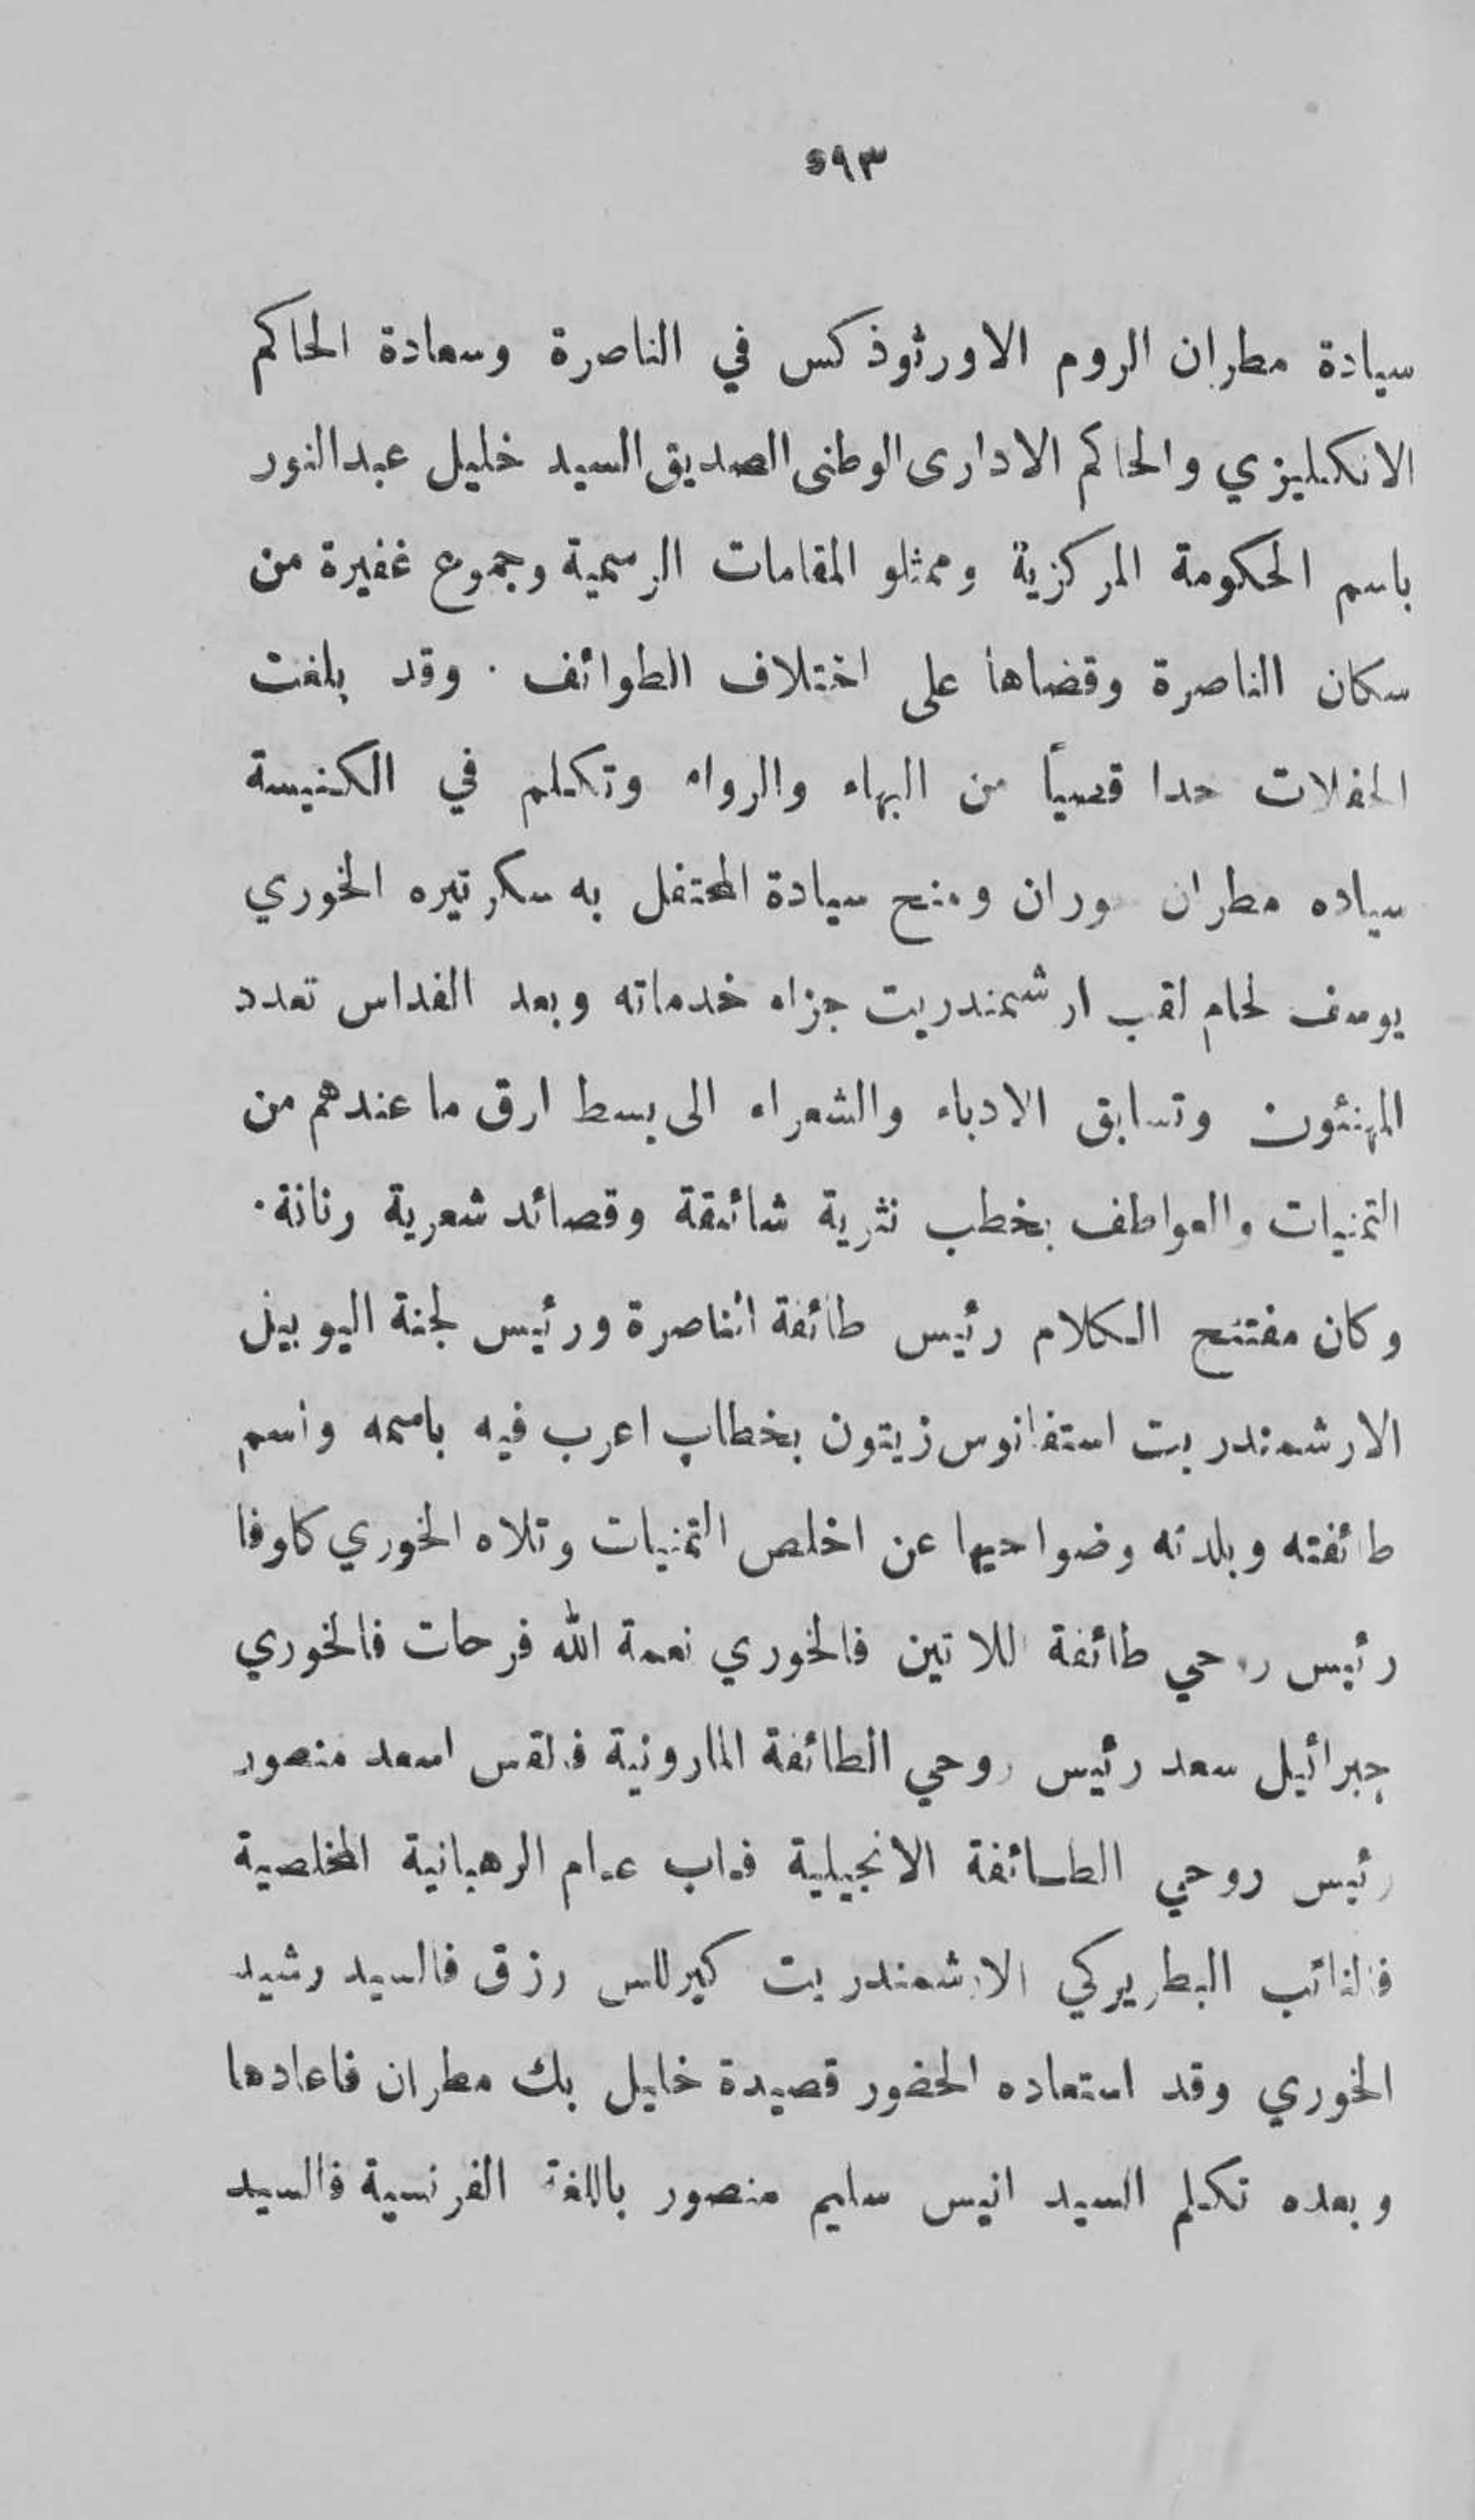 ٥٩٣
سيادة مطران الروم الاورثوذكس في الناصرة وسعادة الحاكم
الانكليزي والحاكم الادارى الوطنى الصديق السيد خليل عبدالنور
باسم الحكومة المركزية وممثلو المقامات الرسمية وجموع غفيرة من
سكان الناصرة وقضاها على اختلاف الطوائف . وقد بلغت
الحفلات حدا قصياً من البهاء والرواء وتكلم في الكنيسة
سياده مطران حوران ومنح سيادة المحتفل به سكرتيره الخوري
يوسف لحام لقب ارشمندريت جزاء خدماته وبعد القداس تعدد
المهنئون وتسابق الادباء والشعراء الى بسط ارق ما عندهم من
التمنيات والعواطف بخطب نثرية شائقة وقصائد شعرية رنانة .
وكان مفتتح الكلام رئيس طائفة الناصرة ورئيس لجنة اليوبيل
الارشمندريت استفانوس زيتون بخطاب اعرب فيه باسمه واسم
طائفته وبلدته وضواحيها عن اخلص التمنيات وتلاه الخوري كاوفا
رئيس روحي طائفة اللاتين فالخوري نعمة الله فرحات فالخوري
جبرائيل سعد رئيس روحي الطائفة المارونية فالقس اسعد منصور
رئيس روحي الطائفة الانجيلية فاب عام الرهبانية المخلصية
فالنائب البطريركي الارشمندريت كيرللس رزق فالسيد رشيد
الخوري وقد استعاده الحضور قصيدة خليل بك مطران فاعادها
وبعده تكلم السيد انيس سليم منصور باللغة الفرنسية فالسيد